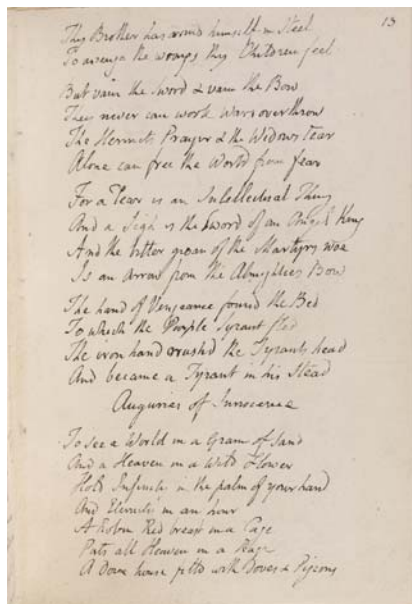 13
Thy Brother has armd himself in Steel
To avenge the wrongs thy Children feel
But vain the Sword & vain the Bow
They never can work Wars overthrow
The Hermits Prayer & the Widows tear
Alone can free the World from fear
For a Tear is an Intellectual Thing
And a Sigh is the Sword of an Angel King
And the bitter groan of the Martyrs woe
Is an arrow from the Almighties Bow
The hand of Vengeance found the Bed
To which the Purple Tyrant fled
The iron hand crushd the Tyrants head
And became a Tyrant in his Stead
Auguries of Innocence
To see a World in a Grain of Sand
And a Heaven in a Wild Flower
Hold Infinity in the palm of your hand
And Eternity in an hour
A Robin Red breast in a Cage
Puts all Heaven in a Rage
A Dove house filld with Doves & Pigeons